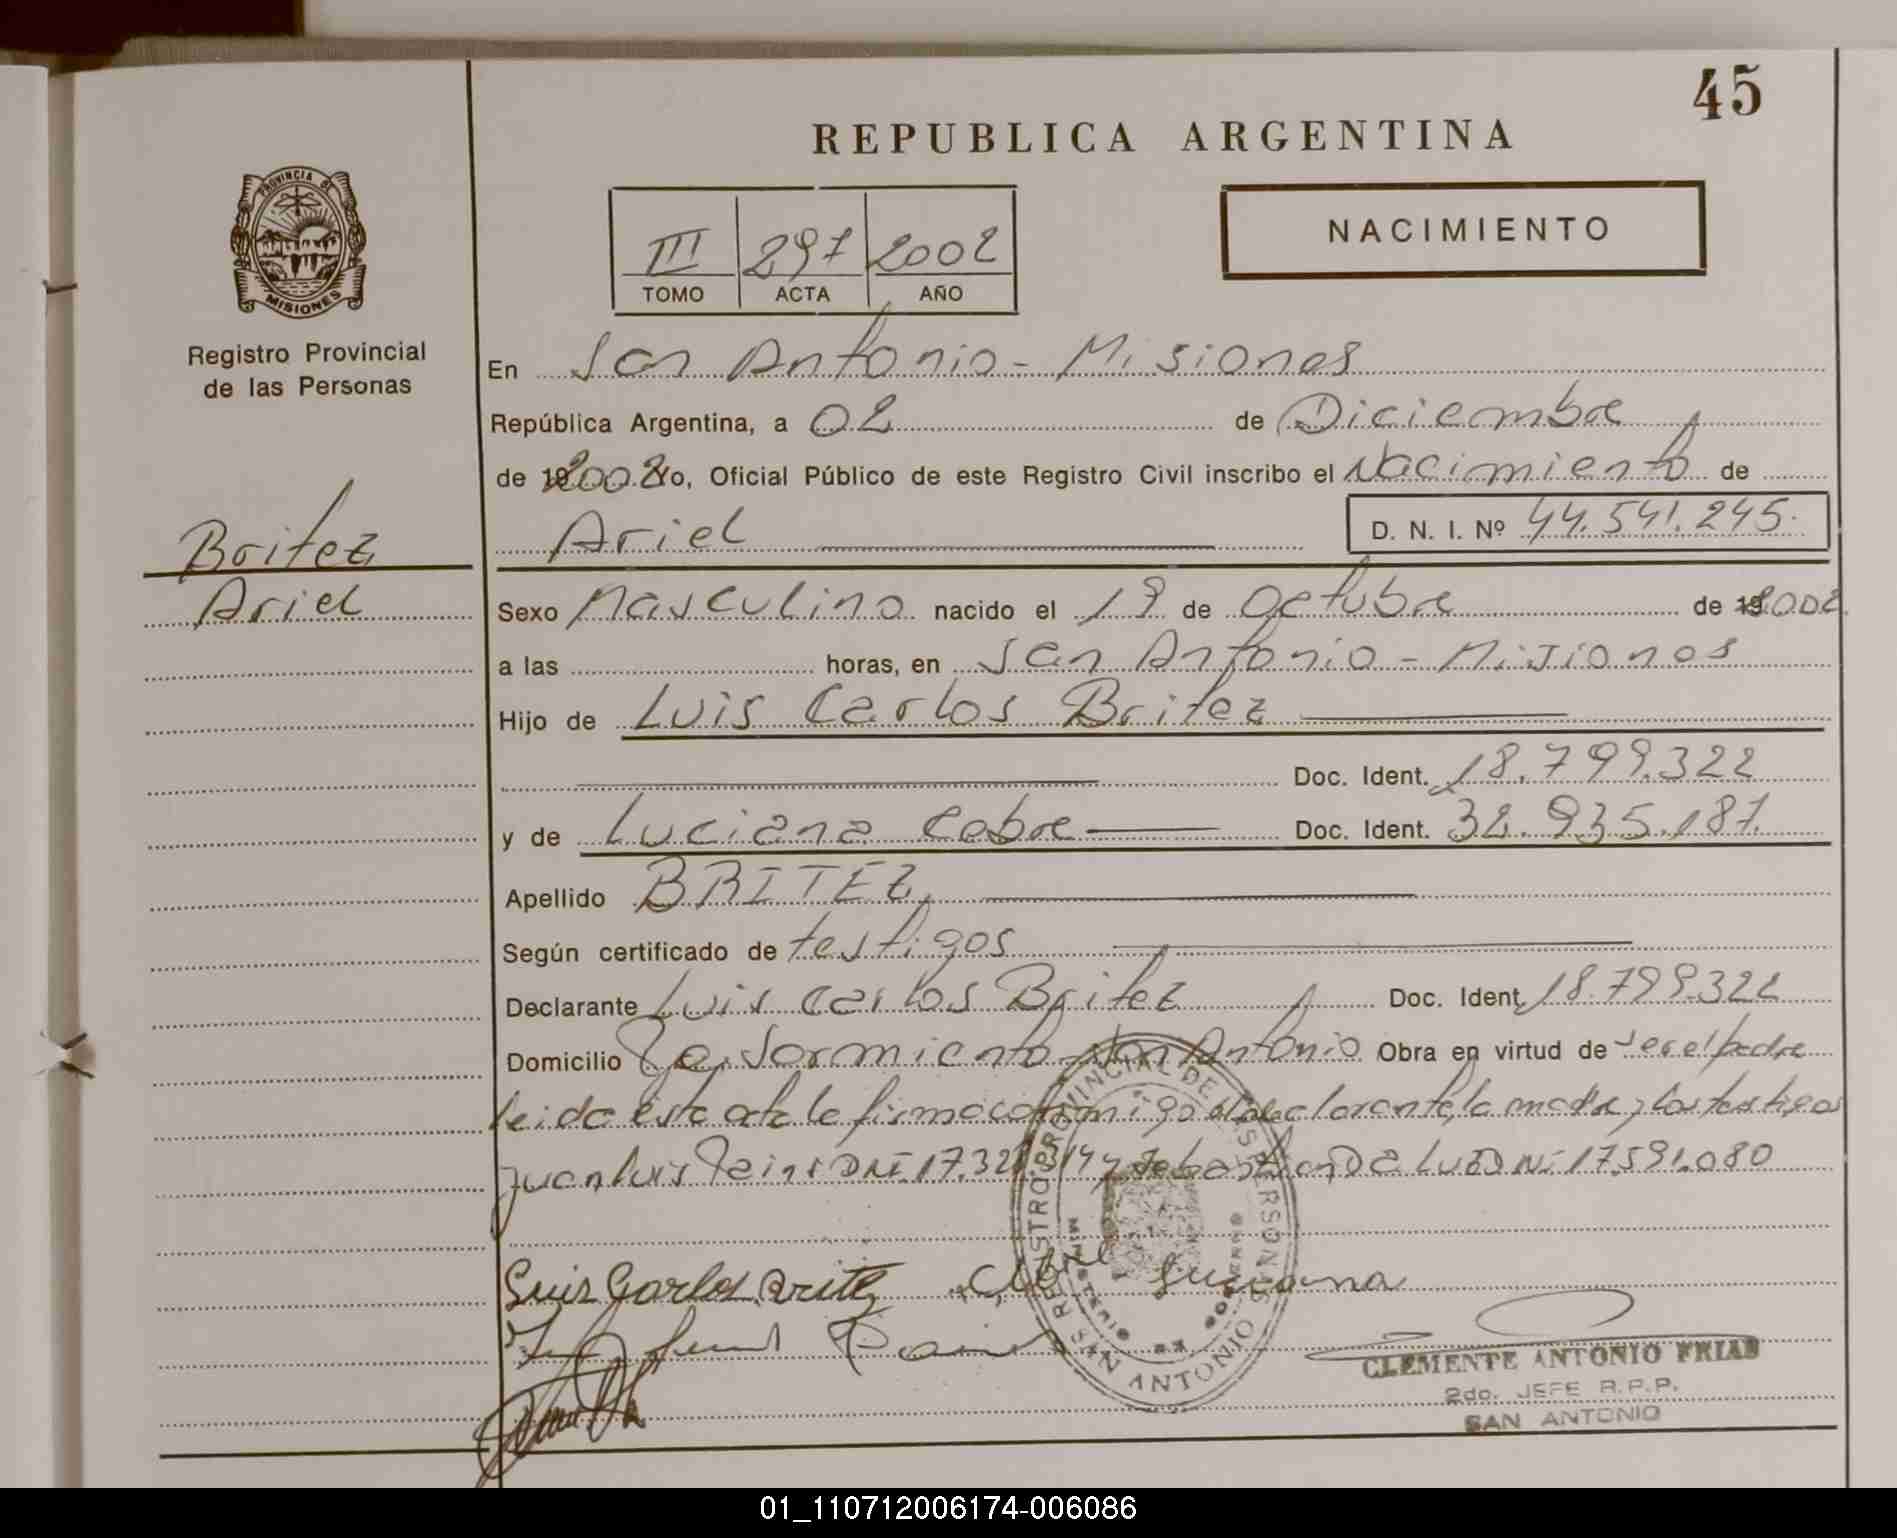 45
REPUBLICA ARGENTINA
PROVINCIA DE
MISIONES
III 297 2002
TOMO ACTA AÑO
NACIMIENTO
Registro Provincial
de las Personas
En San Antonio - Misiones
República Argentina, a 02 de Diciembre
de 192002 Yo, Oficial Público de este Registro Civil inscribo el Nacimiento de
Britez
Ariel
Ariel D. N. I. Nº 44.541.245.
Sexo Masculino nacido el 19 de Octubre de 192002
a las horas, en San Antonio - Misiones
Hijo de Luis Carlos Britez
Doc. Ident. 18.799.322
y de Luciana Cabre Doc. Ident. 32.935.187.
Apellido BRITEZ
Según certificado de testigos
Declarante Luis Carlos Britez Doc. Ident. 18.799.322
Domicilio Sarmiento San Antonio Obra en virtud de ser el padre
leida esta acta la firma conmigo el declarante, la madre y los testigos
Juan Luis DNI. 17.32 y Sebastian Da Luz DNI 17.591.080
Luis Carlos Britez Luciana
REGISTRO PROVINCIAL DE LAS PERSONAS
SAN ANTONIO
CLEMENTE ANTONIO FRIAS
2do. JEFE R.P.P.
SAN ANTONIO
01_110712006174-006086